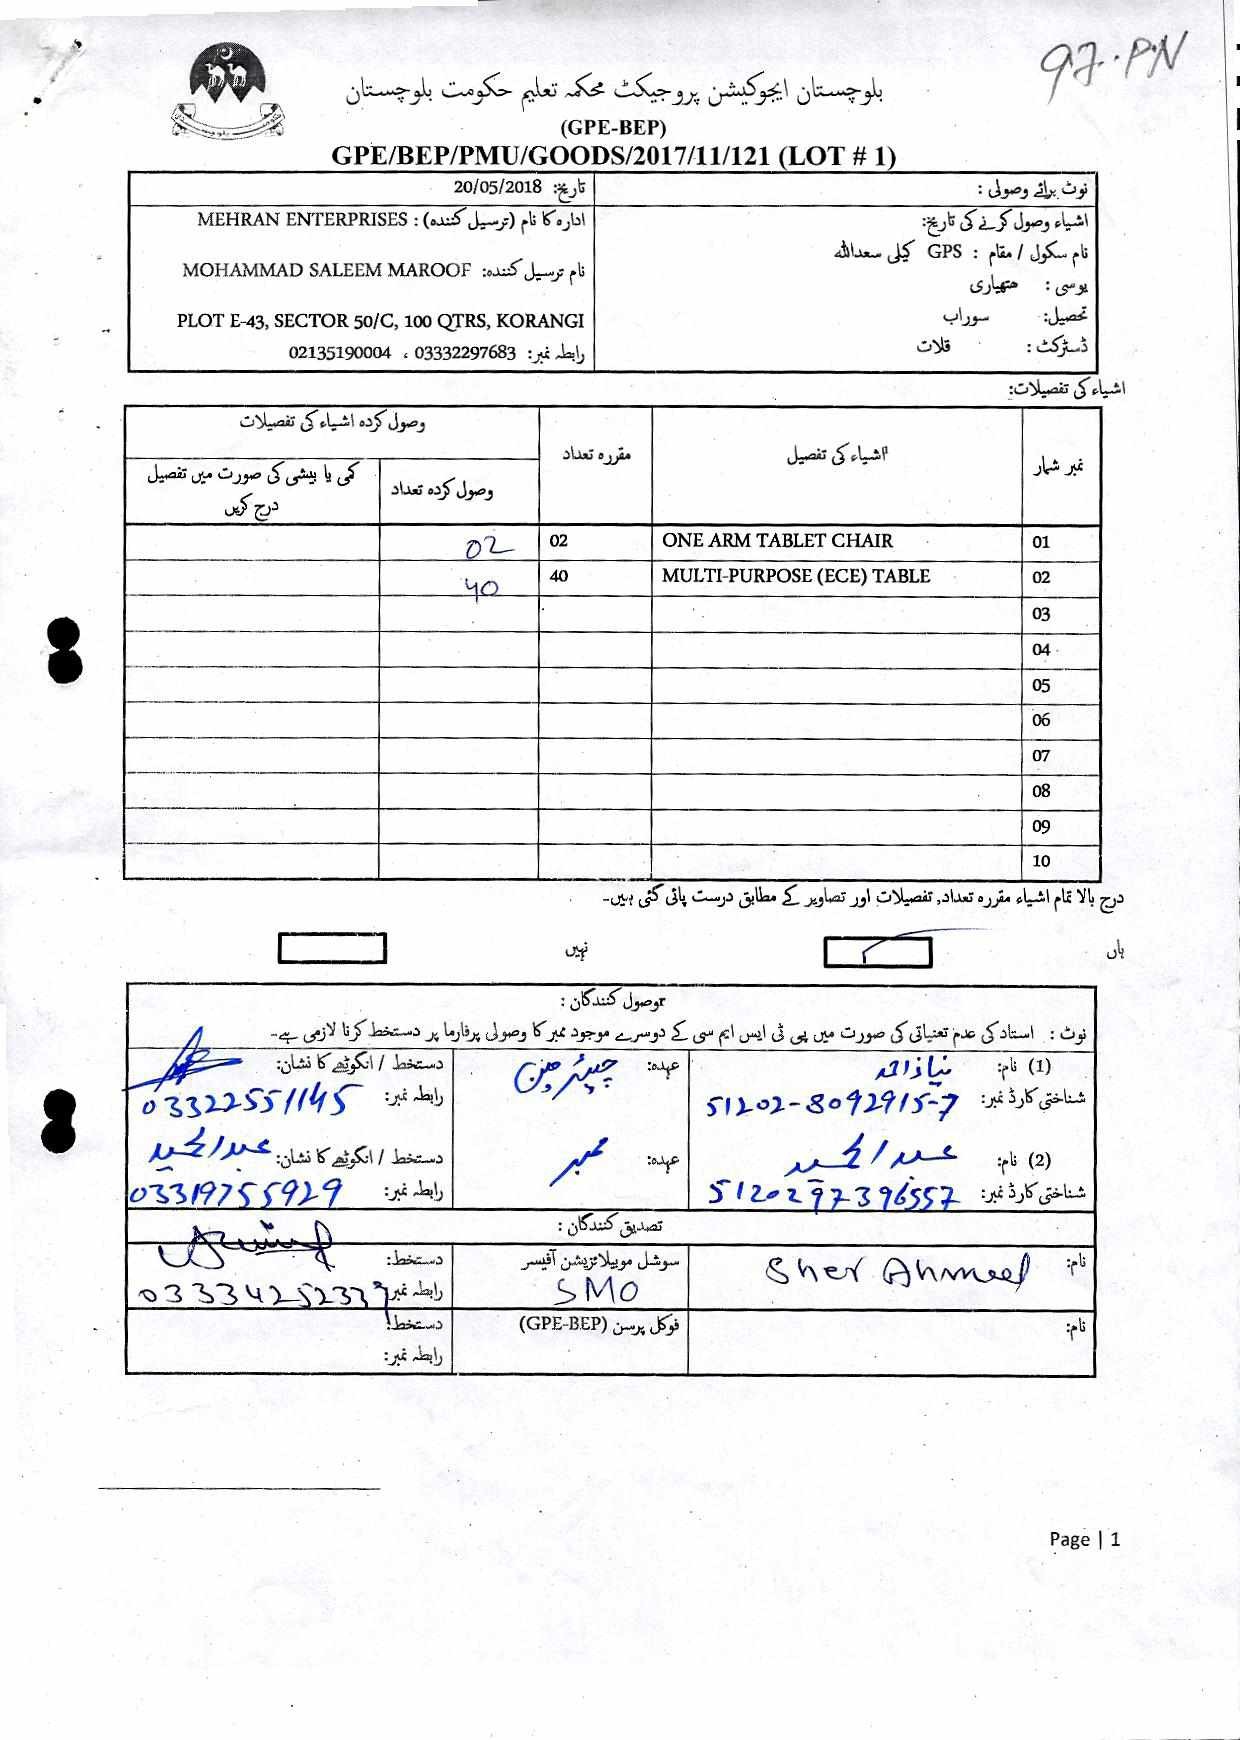 97.PN
بلوچستان ایجوکیشن پروجیکٹ محکمہ تعلیم حکومت بلوچستان
(GPE-BEP)
GPE/BEP/PMU/GOODS/2017/11/121 (LOT # 1)
نوٹ برائے وصولی :
اشیاء وصول کرنے کی تاریخ:
نام سکول / مقام : GPS کیلی سعداللہ
یوسی : ھتھیاری
تحصیل: سوراب
ڈسٹرکٹ : قلات
تاریخ: 20/05/2018
ادارہ کا نام (ترسیل کنندہ) : MEHRAN ENTERPRISES
نام ترسیل کنندہ: MOHAMMAD SALEEM MAROOF
PLOT E-43, SECTOR 50/C, 100 QTRS, KORANGI
رابطہ نمبر: 03332297683 ، 02135190004
اشیاء کی تفصیلات:
نمبر شمار اشیاء کی تفصیل مقررہ تعداد وصول کردہ اشیاء کی تفصیلات
وصول کردہ تعداد کمی یا بیشی کی صورت میں تفصیل درج کریں
01 ONE ARM TABLET CHAIR 02 02
02 MULTI-PURPOSE (ECE) TABLE 40 40
03
04
05
06
07
08
09
10
درج بالا تمام اشیاء مقررہ تعداد, تفصیلات اور تصاویر کے مطابق درست پائی گئی ہیں۔
ہاں نہیں
وصول کنندگان :
نوٹ : استاد کی عدم تعنیاتی کی صورت میں پی ٹی ایس ایم سی کے دوسرے موجود ممبر کا وصولی پرفارما پر دستخط کرنا لازمی ہے۔
(1) نام: نیاز احمد عہدہ: چیئرمین دستخط / انگوٹھے کا نشان:
شناختی کارڈ نمبر: 51202-8092915-7 رابطہ نمبر: 03322551145
(2) نام: عبدالحمید عہدہ: ممبر دستخط / انگوٹھے کا نشان: عبدالحمید
شناختی کارڈ نمبر: 5120297396557 رابطہ نمبر: 03319755929
تصدیق کنندگان :
نام: Sher Ahmed سوشل موبیلائزیشن آفیسر SMO دستخط:
رابطہ نمبر: 03334252339
نام: فوکل پرسن (GPE-BEP) دستخط:
رابطہ نمبر:
Page | 1